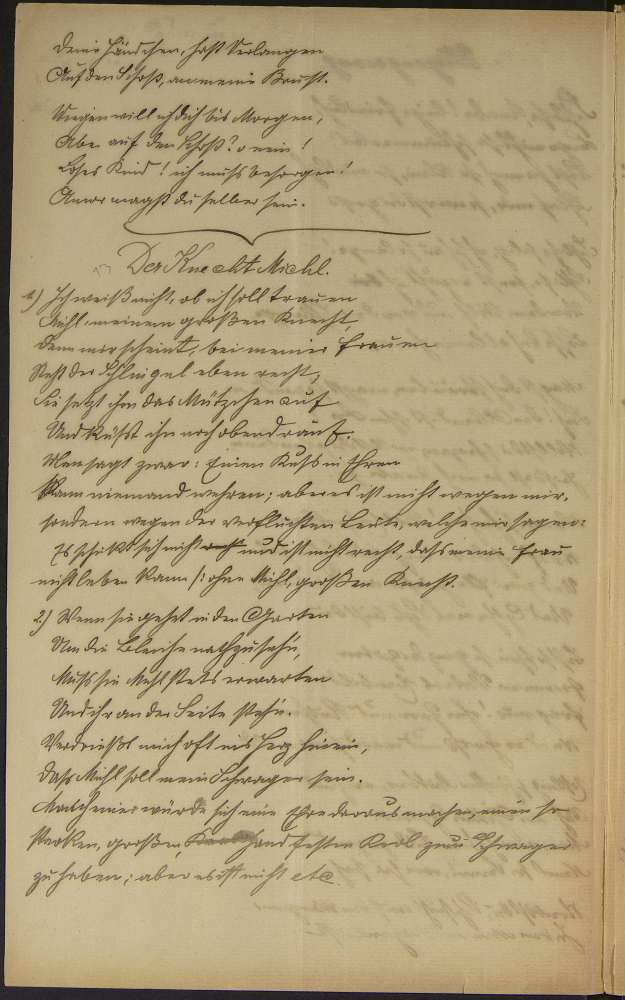 Deine Händchen, hast Verlangen
Auf den Schoß, an meine Brust.
Wiegen will ich dich bis Morgen,
Aber auf den Schoß? o nein!
Loses Kind! ich muß besorgen!
Amor magst du selber sein.
17 Der Knecht Michl.
1) Ich weiß nicht, ob ich soll trauen
Michl, meinem großen Knecht,
Denn mir scheint, bei meiner Frauen
Steht der Schlingel eben recht,
Sie setzt ihm das Mützchen auf
Und küßt ihn noch obendrauf.
Man sagt zwar: Einen Kuß in Ehren
Kann niemand wehren; aber es ist nicht wegen mir,
sondern wegen der verfluchten Leute, welche mir sagen:
Es schickt sich nicht und ist nicht recht, daß meine Frau
nicht leben kann /: ohne Michl, großen Knecht.
2) Wenn sie gehet in den Garten
Um die Bleiche nachzusehn,
Muß sie Michl stets erwarten
Und ihr an der Seite stehn.
Verdrießt mich oft ins Herz hinein,
Daß Michl soll mein Schwager sein.
Manch einer würde sich eine Ehre daraus machen, einen so
starken, großen, handfesten Kerl zum Schwager
zu haben; aber es ist nicht etc.